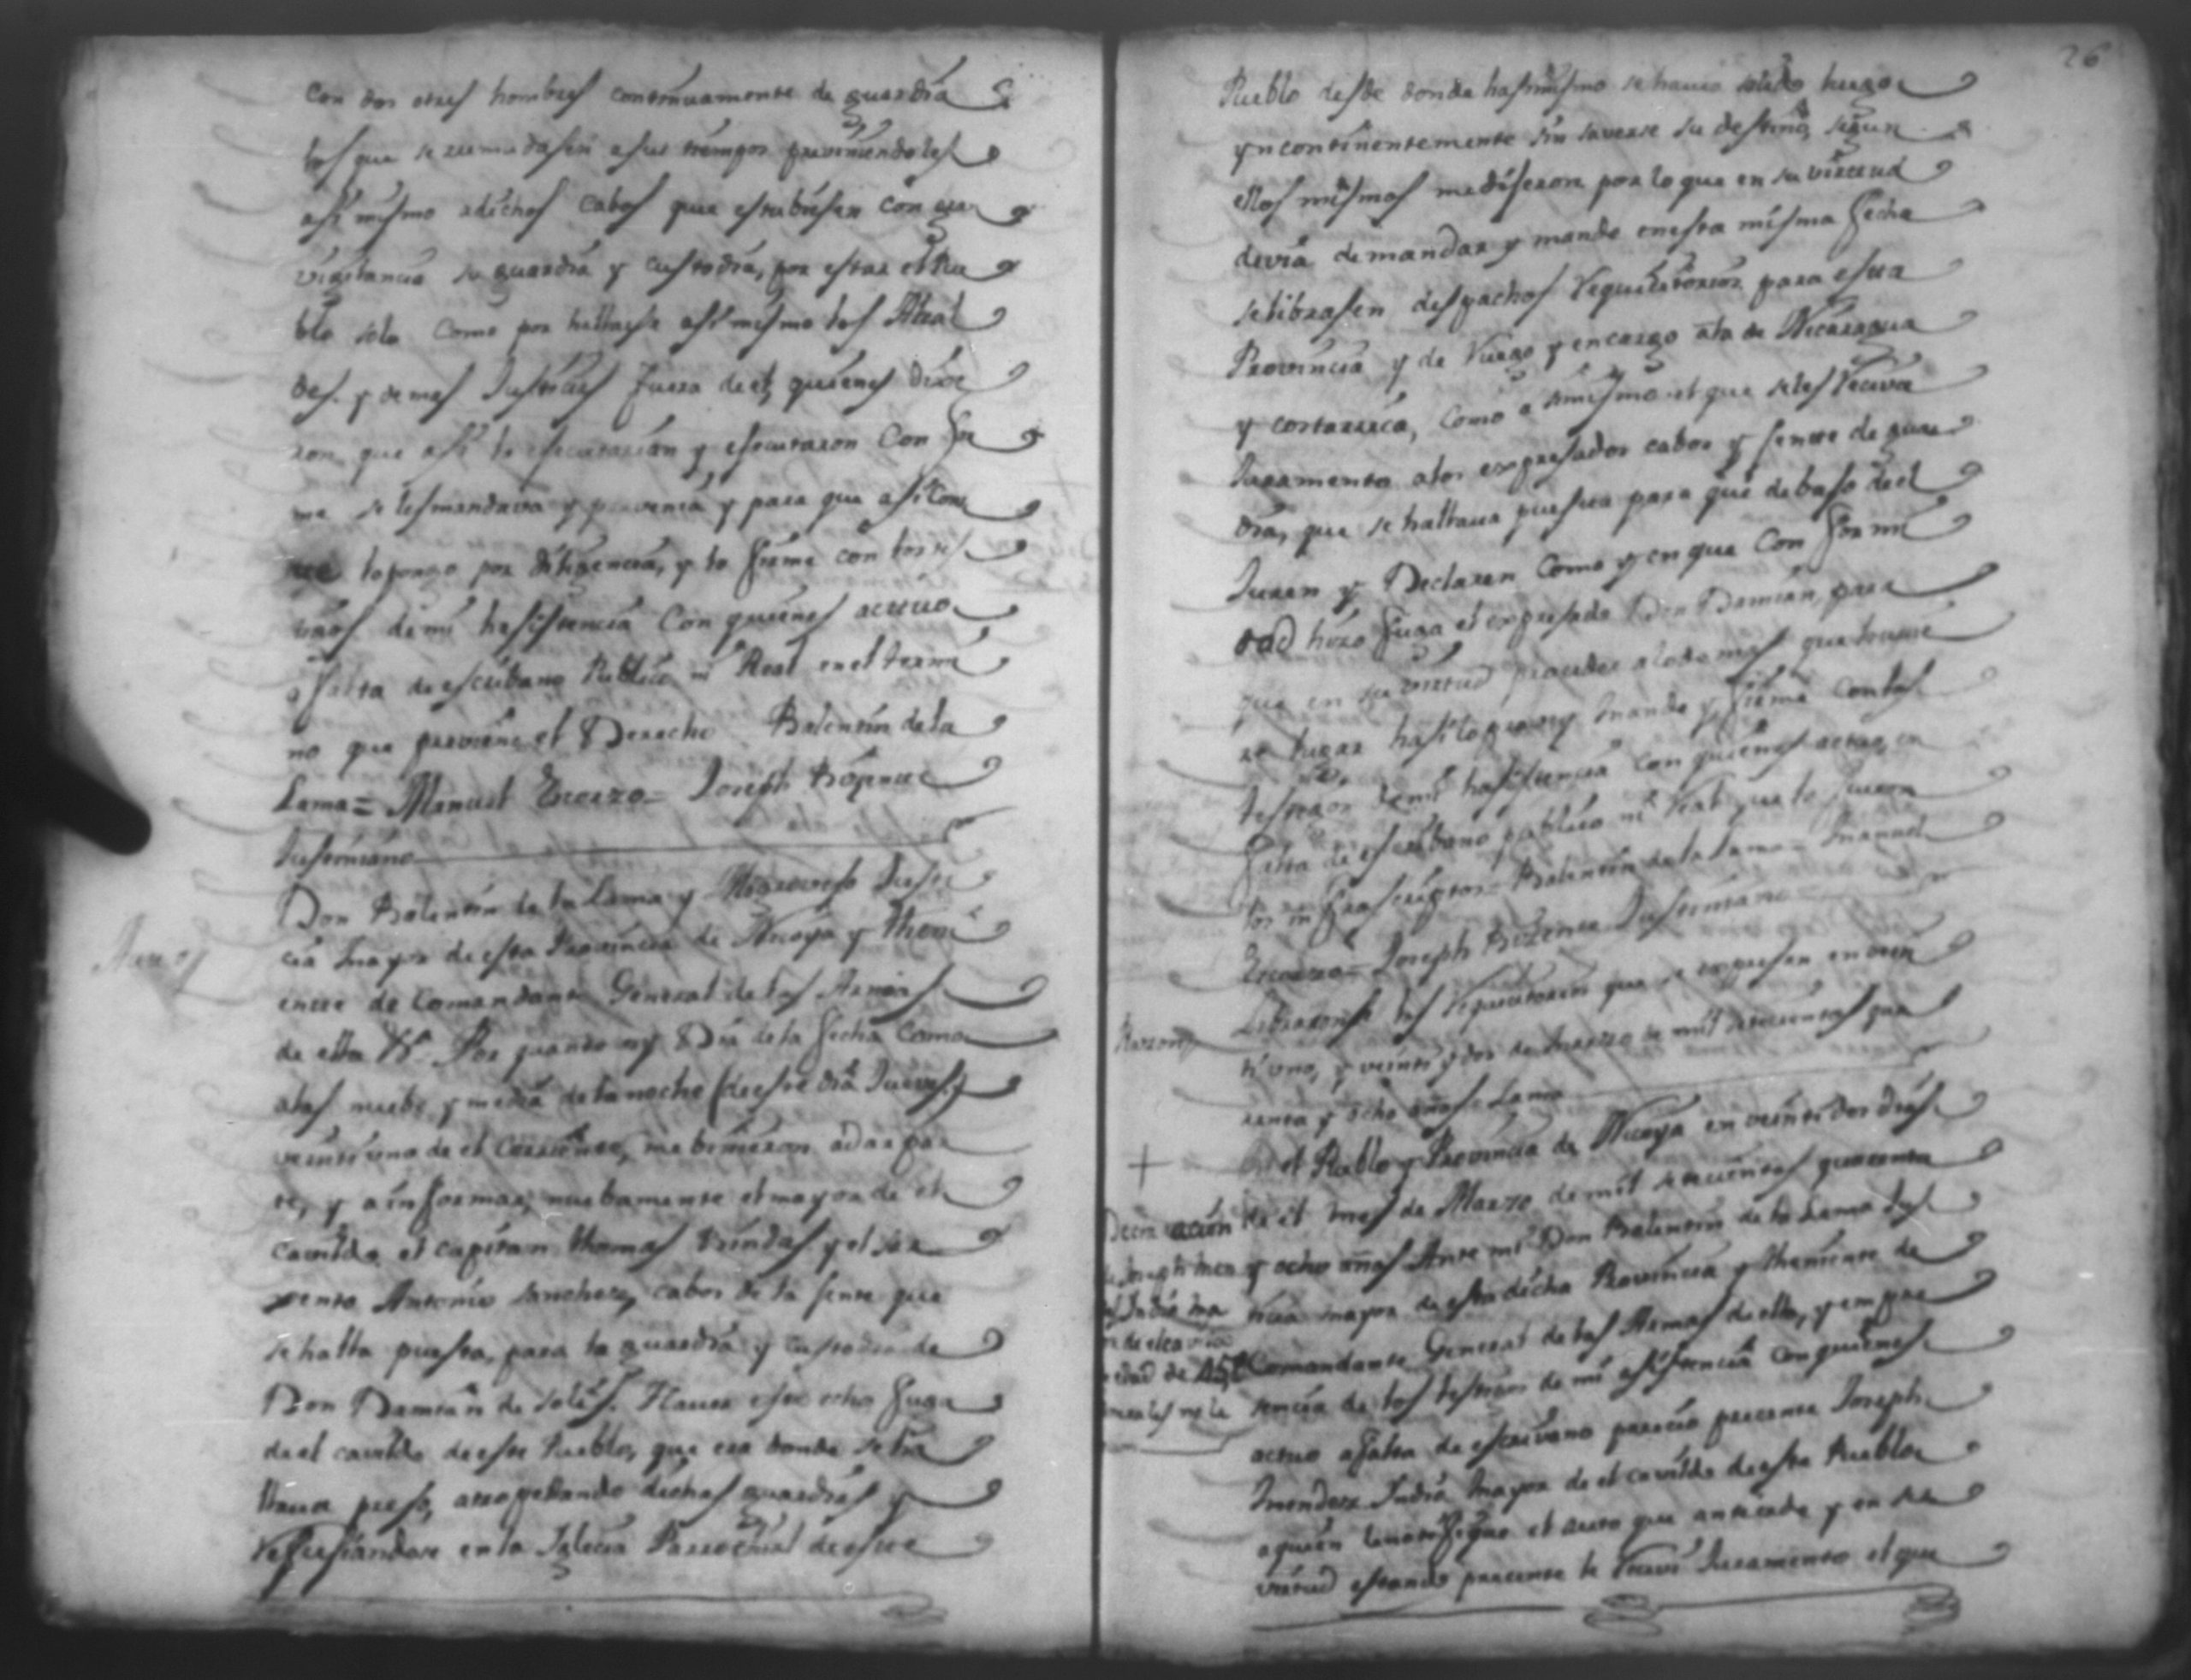 con dos otres hombres continuamente de guardia
los que se remudasen a sus tiempos previniendoles
assi mismo adichos Cabos que estubiesen con gra
vigilancia su guardia y custodia, por estar el Pue
blo solo como por hallarse assi mismo los Alcal
des y demas Justicias fuera de el, quienes dixe
ron que assi lo executarian y executaron Con for
me se les mandava y prevenia y para que assi Cons
te lo pongo por diligencia, y lo firme con los tes
tigos de mi hasistencia Con quienes actuo
a falta de escribano Publico ni Real en el termi
no que previene el Derecho Balentin de la
Lama = Manuel Escorzo = Joseph Bizente
Justiniano
Don Balentin de la Lama y Justi
cia mayor de esta Provincia de Nicoya y theni
ente de Comandante General de las Armas
de ella &a. Por quanto oy Dia de la fecha Como
alas nuebe y media de la noche (de este dia Jueves)
veinti uno de el Corriente, me binieron adar par
te, y a informar, nuebamente el mayor de el
cavildo el capitan thomas Brindas y el sar
gento Antonio Sanchez, cabos de la jente que
se halla puesta, para la guardia y custodia de
Don Damian de Solis. Haver este echo fuga
de el cavildo de este Pueblo, que era donde se ha
llava preso, atropellando dichas guardias y
refujiandose en la Iglecia Parrochial de este
Auto
26
Pueblo desde donde hasimismo se havia salido luego
yncontinentemente sin saverse su destino, segun
ellos mismos me dijeron por lo que en su virtud
devia demandar y mando en esta misma fecha
se librasen despachos Requisitorios para esta
Provincia y de Ruego y encargo ala de Nicaragua
y costarrica, Como asimismo el que se les reciva
Juramento alos expresados cabos y jente de guar
dia, que se hallava puesta para que debajo de el
Juren y Declaren Como y en que Con for mi
dad hizo fuga el expresado Don Damian, para
que en su virtud proceder alo demas que hubie
re lugar hasi lo provey mande y firme con los
testigos de mi hasistencia con quienes actuo, a
falta de escribano publico ni Real que lo fueron
los infrascriptos = Balentin de la Lama = Manuel
Escorzo = Joseph Bizente Justiniano
Razon
Libraronse los requisitorios que se expresan en vein
ti uno, y veinti y dos de Marzo de mil setecientos qua
renta y ocho años = Lama
En el Pueblo y Provincia de Nicoya en veinti dos dias
de el mes de Marzo de mil setecientos quarenta
y ocho años Ante mi Don Balentin de la Lama Jus
ticia mayor de esta dicha Provincia y theniente de
Comandante General de las Armas de ella, y en pre
sencia de los testigos de mi asistencia con quienes
actuo afalta de escrivano parecio precente Joseph
Mendoza Indio Mayor de el cavildo de este Pueblo
a quien le notifique el auto que antecede y en su
virtud estando precente le Recivi Juramento el que